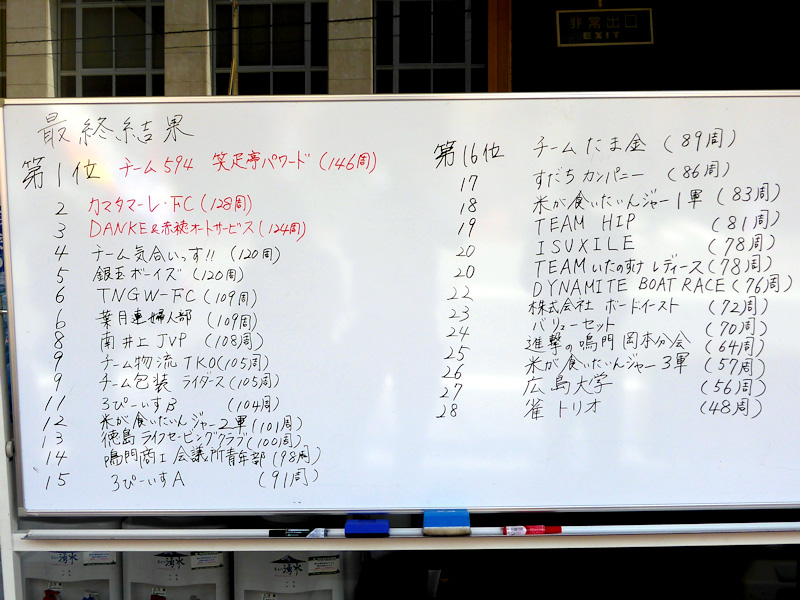 非常出口
EXIT
最終結果
第1位 チーム594 笑足亭パワード(146周)
2 カマタマーレ・FC(128周)
3 DANKE&赤穂オートサービス(124周)
4 チーム気合いっす!!(120周)
5 銀玉ボーイズ(120周)
6 TNGW-FC(109周)
6 葉月連婦人部(109周)
8 南井上JVP(108周)
9 チーム物流TKO(105周)
9 チーム包装ライダース(105周)
11 3ぴーいすB(104周)
12 米が食いたいんジャー2軍(101周)
13 徳島ライフセービングクラブ(100周)
14 鳴門商工会議所青年部(98周)
15 3ぴーいすA(91周)
第16位 チームたま金(89周)
17 すだちカンパニー(86周)
18 米が食いたいんジャー1軍(83周)
19 TEAM HIP(81周)
20 ISUXILE(78周)
20 TEAMいたのすけレディース(78周)
22 DYNAMITE BOAT RACE(76周)
23 株式会社ボードイースト(72周)
24 バリューセット(70周)
25 進撃の鳴門岡本分会(64周)
26 米が食いたいんジャー3軍(57周)
27 広島大学(56周)
28 雀トリオ(48周)
湧水
湧水
湧水